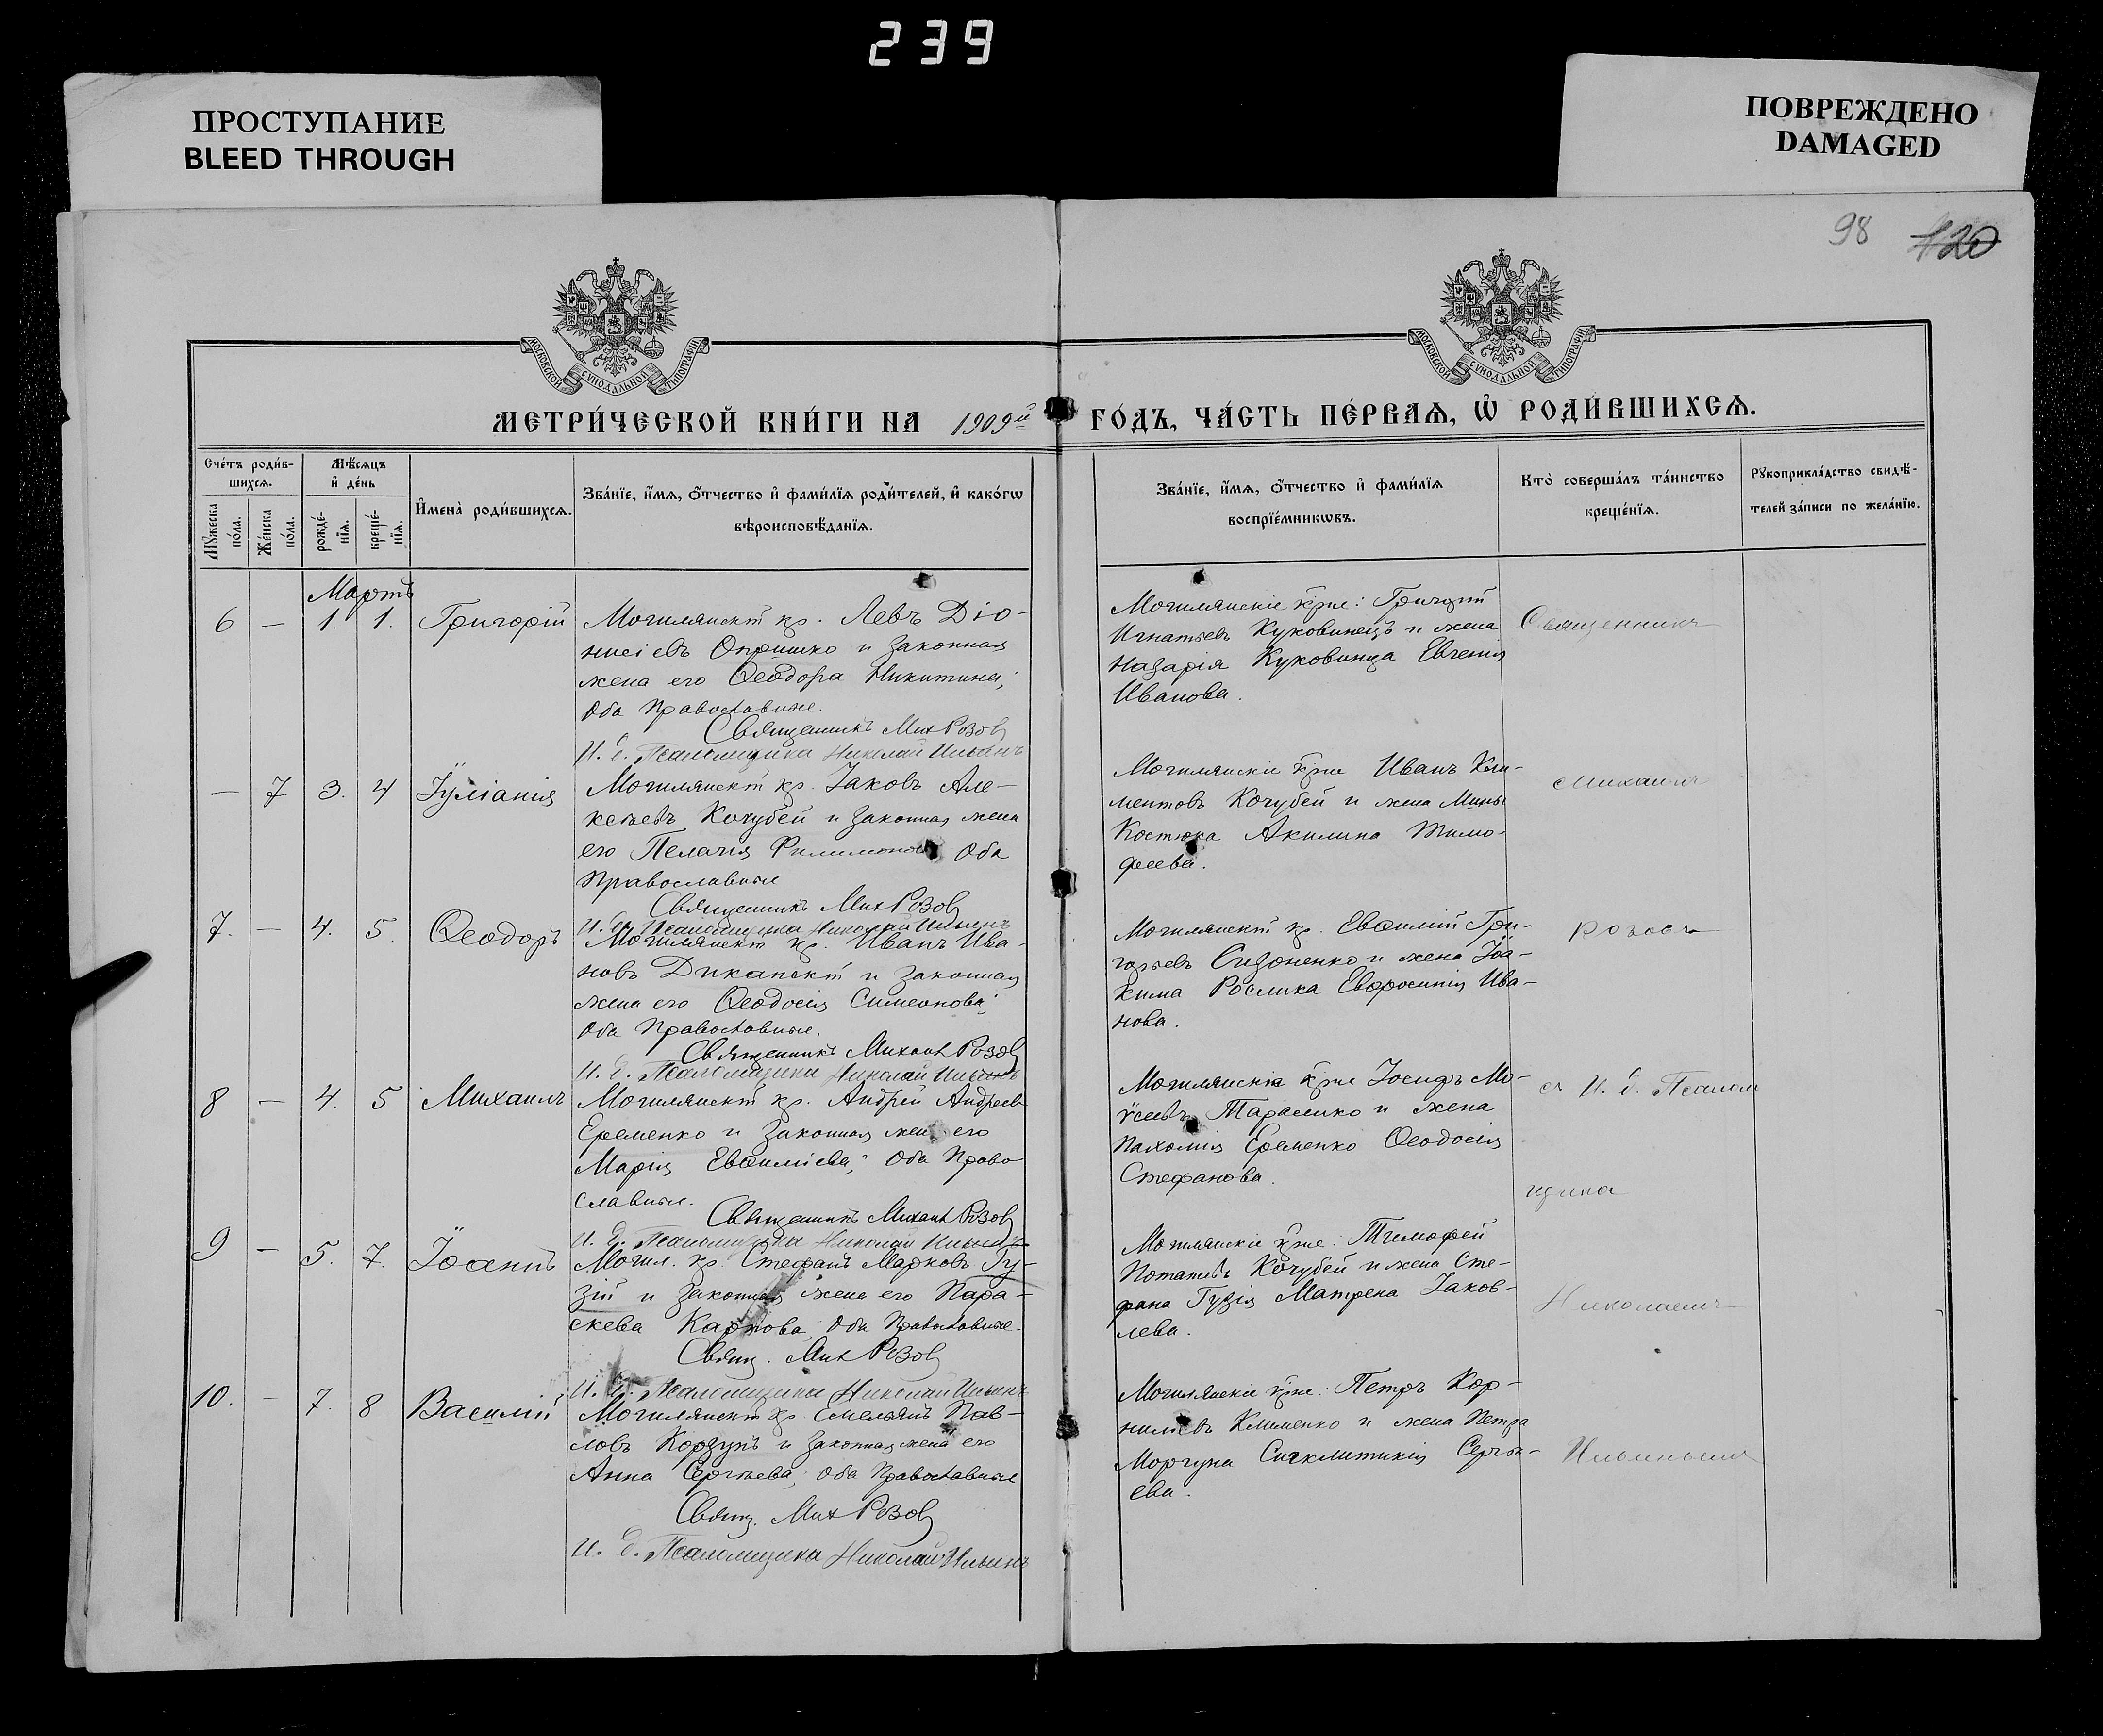 239
ПРОСТУПАНИЕ
BLEED THROUGH
ПОВРЕЖДЕНО
DAMAGED
98 120
МОСКОВСКОЙ СѴНОДАЛЬНОЙ ТИПОГРАФІИ
МОСКОВСКОЙ СѴНОДАЛЬНОЙ ТИПОГРАФІИ
МЕТРИ́ЧЕСКОЙ КНИ́ГИ НА 1909й ГО́ДЪ, ЧА́СТЬ ПЕ́РВАѦ, Ѿ РОДИ́ВШИХСѦ.
Сче́тъ роди́в-
шихсѧ.
Мѣ́сѧцъ
и҆ де́нь
Мꙋ́жеска по́ла.
Же́нска по́ла.
рожде́-
нїѧ.
креще́-
нїѧ.
И҆мена̀ роди́вшихсѧ.
Зва́нїе, и҆́мѧ, ѻ҆́тчество и҆ фами́лїѧ роди́телей, и҆ како́гѡ
вѣроисповѣ́данїѧ.
Зва́нїе, и҆́мѧ, ѻ҆́тчество и҆ фами́лїѧ
воспрїе́мникѡвъ.
Кто̀ соверша́лъ та́инство
креще́нїѧ.
Рꙋкоприкла́дство свидѣ́-
телей за́писи по жела́нїю.
Мартъ
6 — 1. 1. Григорій
Могилянскій кр. Левъ Діо-
нисіевъ Опришко и законная
жена его Ѳеодора Никитина;
оба православные.
Священникъ Мих Розов
И. д. Псаломщика Николай Ильинъ
Могилянскіе кр-не: Григорій
Игнатьевъ Куковинецъ и жена
Назарія Куковинца Евгенія
Иванова.
Священникъ
— 7 3. 4 Іуліанія
Могилянскій кр. Іаковъ Але-
ксѣевъ Кочубей и законная жена
его Пелагія Филимонова оба
православные
Священникъ Мих Розов
И. д. Псаломщика Николай Ильинъ
Могилянскіе кр-не Иванъ Кли-
ментовъ Кочубей и жена Мины
Костюка Акилина Тимо-
феева.
Михаилъ
7. — 4. 5. Ѳеодоръ
Могилянскій кр. Иванъ Ива-
новъ Диканскій и законная
жена его Ѳеодосія Симеонова;
оба православные.
Священникъ Михаил Розов
И. д. Псаломщика Николай Ильинъ
Могилянскій кр. Евѳимій Гри-
горьевъ Сидоненко и жена Іоа-
кима Рослика Евфросинія Ива-
нова.
Розовъ
8 — 4. 5 Михаилъ
Могилянскій кр. Андрей Андреевъ
Еременко и законная жена его
Марія Евѳиміева; оба право
славные.
Священникъ Михаил Розов
И. д. Псаломщика Николай Ильинъ
Могилянскіе кр-не Іосифъ Мо-
ѵсеевъ Тараненко и жена
Пахомія Еременко Ѳеодосія
Стефанова.
съ И. д. Псалом
щика
9 — 5. 7. Іоаннъ
Могил. кр. Стефанъ Марковъ Гу-
зій и законная жена его Пара-
скева Карпова; оба православные.
Свящ. Мих Розов
И. д. Псаломщика Николай Ильинъ
Могилянскіе кр-не: Тимофей
Потапіевъ Кочубей и жена Сте-
фана Гузія Матрена Іаков-
лева.
Николаемъ
10. — 7. 8 Василій
Могилянскій кр. Емельянъ Пав-
ловъ Корзунъ и законная жена его
Анна Сергѣева; оба православные
Свящ. Мих Розов
И. д. Псаломщика Николай Ильинъ
Могилянскіе кр-не: Петръ Кор-
ниліевъ Клименко и жена Петра
Моргуна Синклитикія Сергѣ-
ева.
Ильинымъ